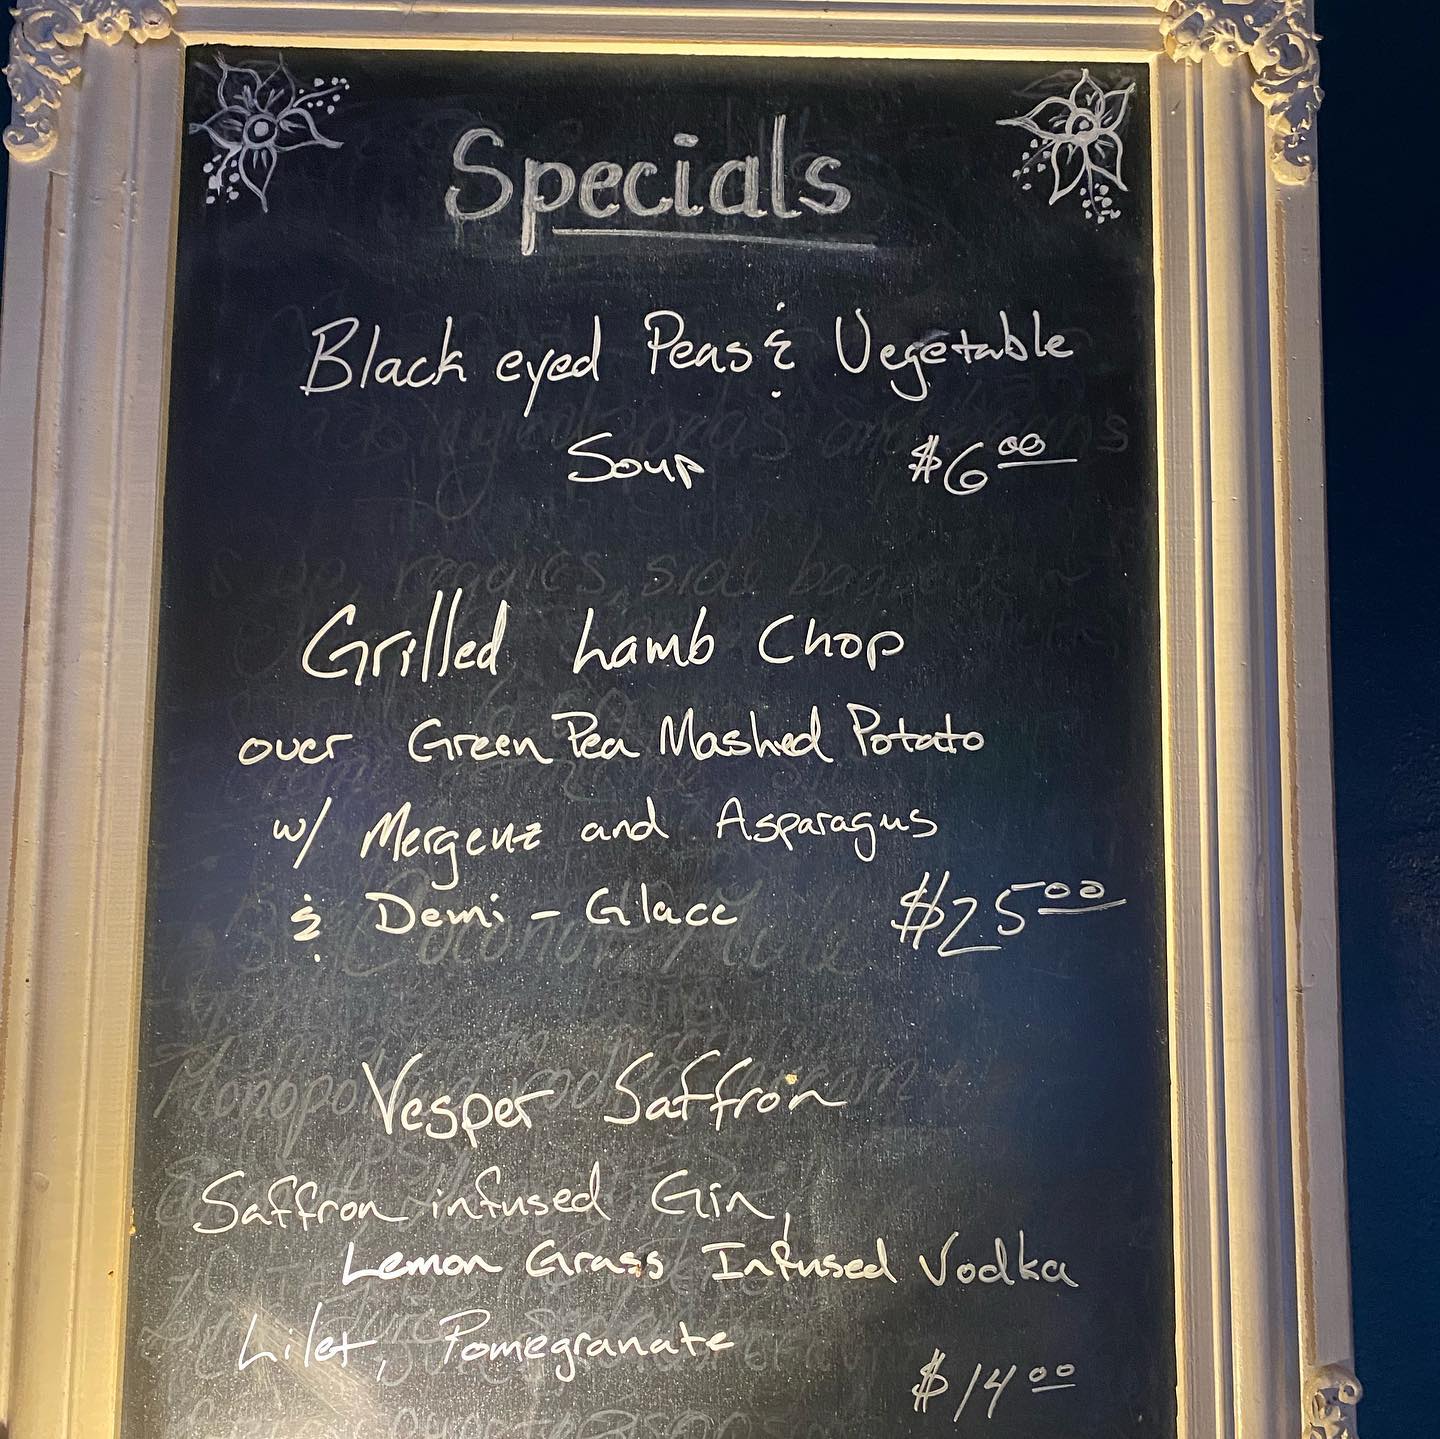 Specials
Black eyed Peas & Vegetable
Soup $6.00
Grilled Lamb Chop
over Green Pea Mashed Potato
w/ Mergenz and Asparagus
& Demi - Glace $25.00
Vesper Saffron
Saffron infused Gin,
Lemon Grass Infused Vodka
Lilet, Pomegranate
$14.00